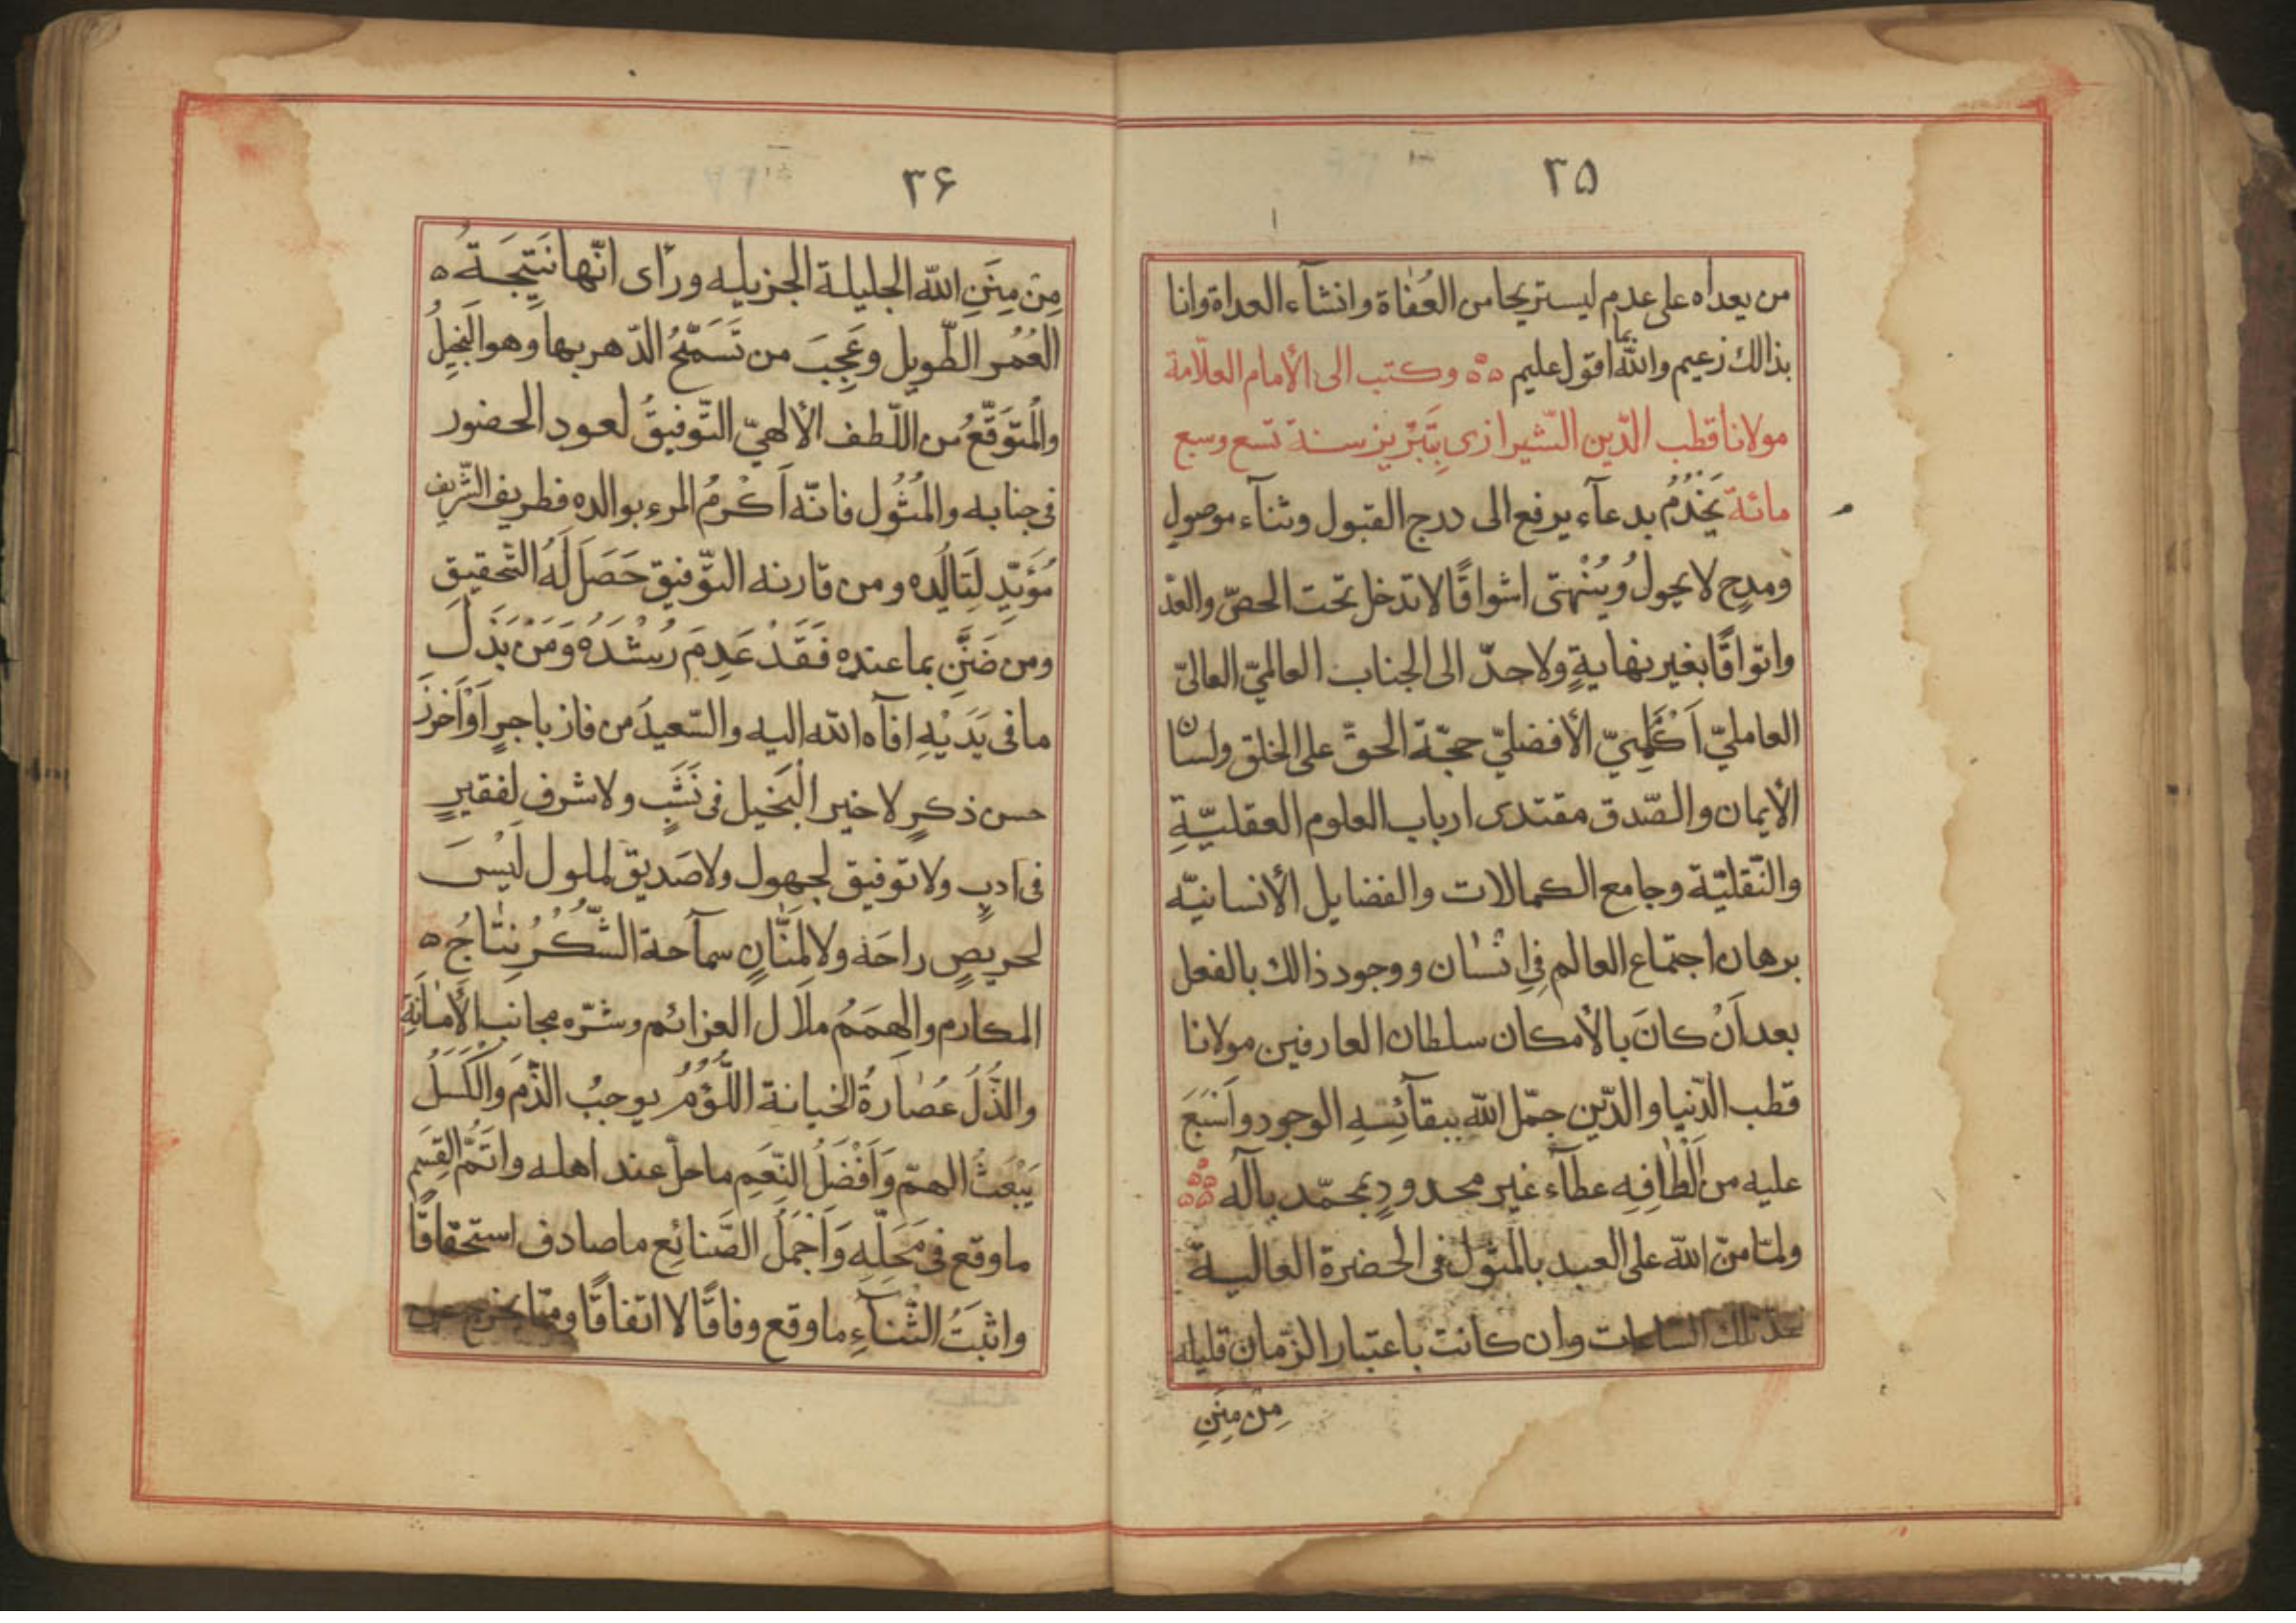 ٣۵
من بعداه على عدم ليستريحا من العُفاة وانشآء العداة وانا
بذالك زعيم والله بما اقول عليم ٥٥ وكتب الى الأمام العلّامة
مولانا قطب الدّين الشّيرازى بِتَبْرِيز سنة تسع وسبع
مائة يَخْدُمُ بدعآء يرفع الى درج القبول وثنآء موصولٍ
ومدحٍ لا يحول ويُنْهى اشواقًا لا تدخل تحت الحصّ والعدّ
واتواقًا بغير نهايةٍ ولا حدّ الى الجناب العالميّ العالىّ
العامليّ اَكْمَلِيّ الأفضليّ حجّة الحقّ على الخلق ولسان
الأيمان والصّدق مقتدى ارباب العلوم العقليّةِ
والنّقليّة وجامع الكمالات والفضايل الأنسانيّه
برهان اجتماع العالم فى انسان ووجود ذالك بالفعل
بعد اَنْ كانَ بالأمكان سلطان العارفين مولانا
قطب الدّنيا والدّين جمّل الله ببقآئِه الوجود واَسْبَغَ
عليه من اَلْطافِهِ عطآء غير محدودٍ بمحمّد بآلَه
ولمّا منّ الله على العبد بالمثول فى الحضرة العاليـة
تلك السّاعات وان كانت باعتبار الزّمان قليلة
مِنْ مِنَنِ
٣۶
مِنْ مِنَنِ الله الجليلة الجزيله ورأى انّها نَتِيجَـةُ ٥
العُمُر الطّويل وعَجِبَ من تَسَمُّحِ الدّهر بها وهو البَخِيلُ
والْمُتَوَقَّعُ من اللّطف الألهيّ التّوفيقُ لعود الحضور
فى جنابه والمُثُول فانّه اَكْرمُ المرء بوالده فطريف الشّريف
مُؤيّدٍ لِتَالِده ومن قارنه التّوفيق حَصَلَ لَهُ التّحقيق
ومن ضَنَّنِ بما عنده فَقَدْ عَدِمَ رُشْدَهُ وَمَنْ بَذَلَ
ما فى يَدَيْهِ افآه الله اليه والسّعيدُ من فاز باجرٍ اَوْ اَحْرَزَ
حسن ذكرٍ لا خير البَخيل فى نَشَبٍ ولا شرف لِفقيرٍ
فى ادبٍ ولا توفيق لجهول ولا صَديق لملول لَيْسَ
لحريصٍ راحَة ولا لِمَنَّانٍ سمآحة الشّكْرُ نِتَاجُ ٥
المكارم والهمَمُ ملآل العزائم وشرّه مجانب الأَمَانَةِ
والذُّلُ عُصَارةُ الخيانة اللُّؤْمُ يوجبُ الذّمَ والْكَسَلُ
يَبْعَثُ الهمّ وَاَفْضَلُ النِّعَمِ ما حلّ عند اهله واتَمُّ القِسَمِ
ما وقع فى مَحَلّه وَاَجْمَلُ الصَّنائِع ما صادف استحقاقًا
واثبَتُ الثّنآءِ ما وقع وفاقًا لا اتفاقًا وممّا